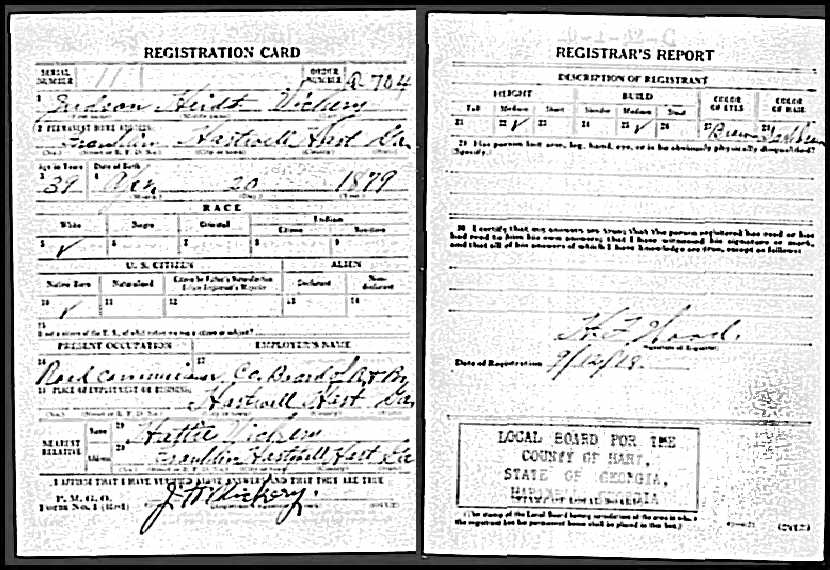 REGISTRATION CARD
SERIAL NUMBER 11 ORDER NUMBER A 704
1 Judson Heidt Vickery
2 PERMANENT HOME ADDRESS:
Franklin Hartwell Hart Ga
Age in Years Date of Birth
39 20 1879
RACE
White Negro Oriental Indian
Citizen
5 ✓ 6 7 8 9
U. S. CITIZEN ALIEN
Native Born Naturalized Citizen by Father's Naturalization Before Registrant's Majority Declarant Non-declarant
10 ✓ 11 12 13 14
15
If not a citizen of the U. S., of what nation are you a citizen or subject?
PRESENT OCCUPATION EMPLOYER'S NAME
16 Road Commissioner 17 Co. Board of
18 PLACE OF EMPLOYMENT OR BUSINESS:
Hartwell Hart Ga
NEAREST RELATIVE Name 19 Hattie Vickery
Address 20 Franklin Hartwell Hart Ga
I AFFIRM THAT I HAVE VERIFIED ABOVE ANSWERS AND THAT THEY ARE TRUE
P. M. G. O.
Form No. 1 (Red) J H Vickery
REGISTRAR'S REPORT
DESCRIPTION OF REGISTRANT
HEIGHT BUILD COLOR OF EYES COLOR OF HAIR
Tall Medium Short Slender Medium Stout
21 22 ✓ 23 24 25 ✓ 26 27 Brown 28
29 Has person lost arm, leg, hand, eye, or is he obviously physically disqualified?
(Specify.)
30 I certify that my answers are true; that the person registered has read or has
had read to him his own answers; that I have witnessed his signature or mark,
and that all of his answers of which I have knowledge are true, except as follows:
Wood
Signature of Registrar
Date of Registration 9/12/18
LOCAL BOARD FOR THE
COUNTY OF HART,
STATE OF GEORGIA,
GEORGIA
(The stamp of the Local Board having jurisdiction of the area in which
the registrant has his permanent home shall be placed in this box.)
(OVER)